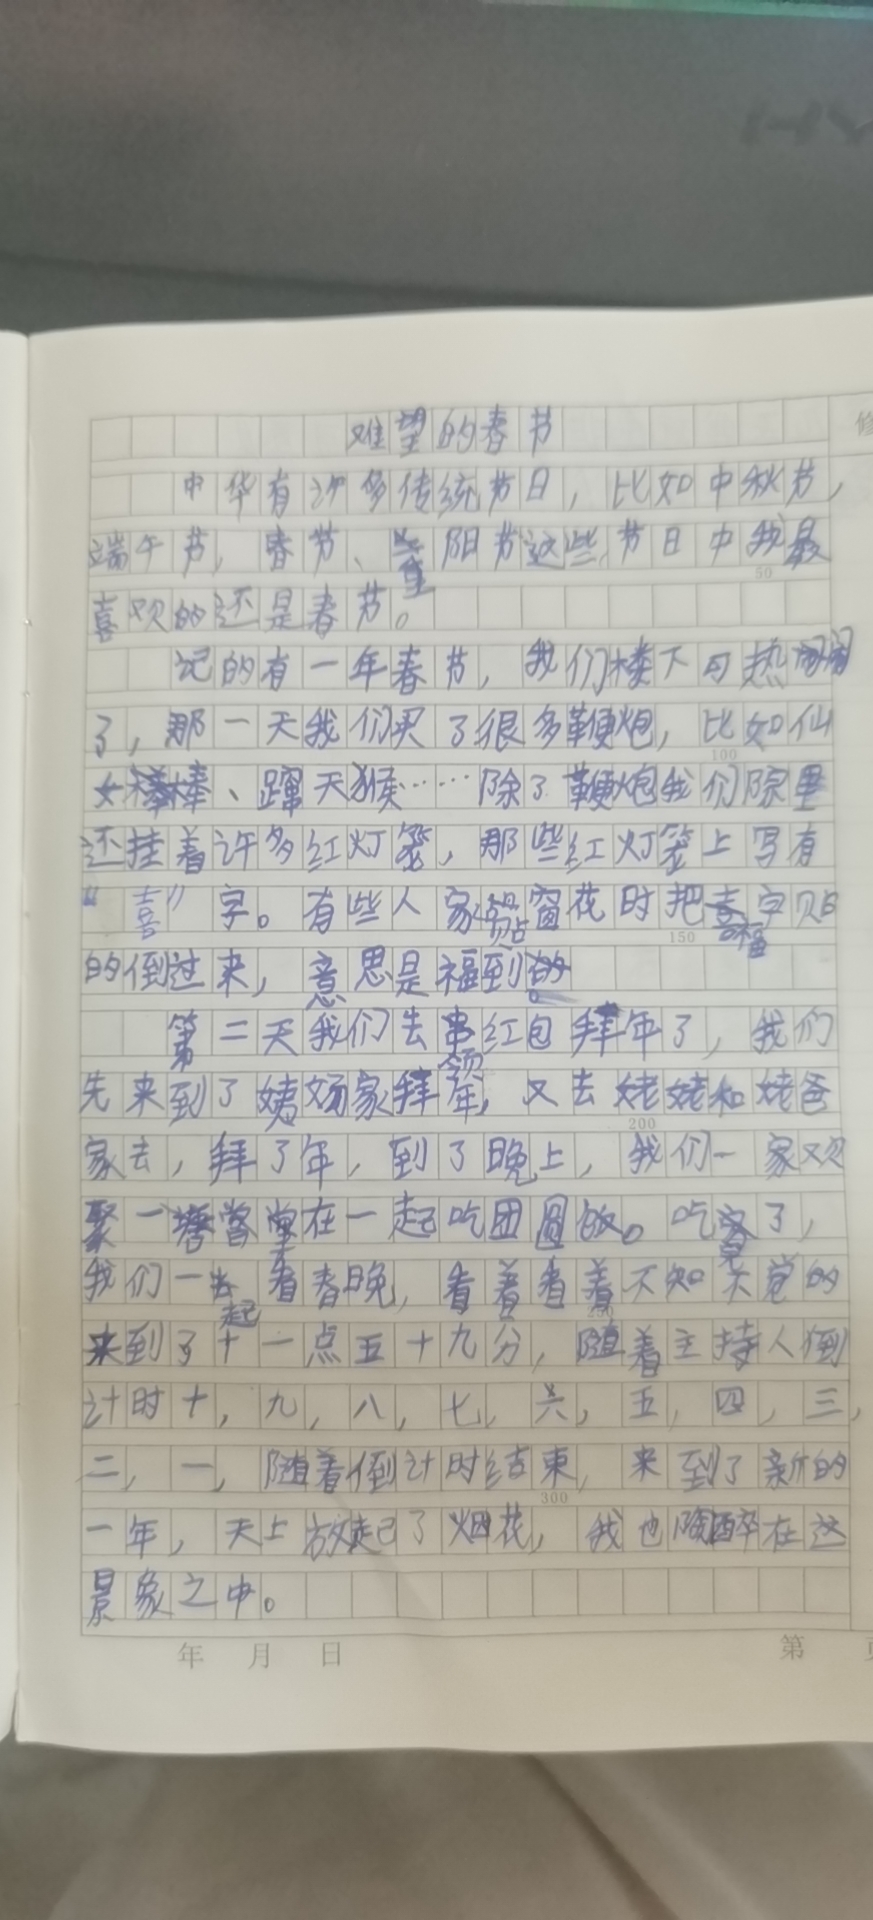 难望的春节
中华有许多传统节日，比如中秋节，
端午节，春节、重阳节这些节日中我最
喜欢的还是春节。
记的有一年春节，我们楼下可热闹
了，那一天我们买了很多鞭炮，比如仙
女棒、蹿天猴……除了鞭炮我们院里
还挂着许多红灯笼，那些红灯笼上写有
“喜”字。有些人家贴窗花时把福字贴
的倒过来，意思是福到
第二天我们去领红包拜年了，我们
先来到了姨妈家拜年，又去姥姥和姥爸
家去，拜了年，到了晚上，我们一家欢
聚一堂在一起吃团圆饭。吃完了，
我们一起看春晚，看着看着不知关觉的
来到了十一点五十九分，随着主持人倒
计时十，九，八，七，六，五，四，三，
二，一，随着倒计时结束，来到了新的
一年，天上放起了烟花，我也陶醉在这
景象之中。
50
100
150
200
250
300
年 月 日
第